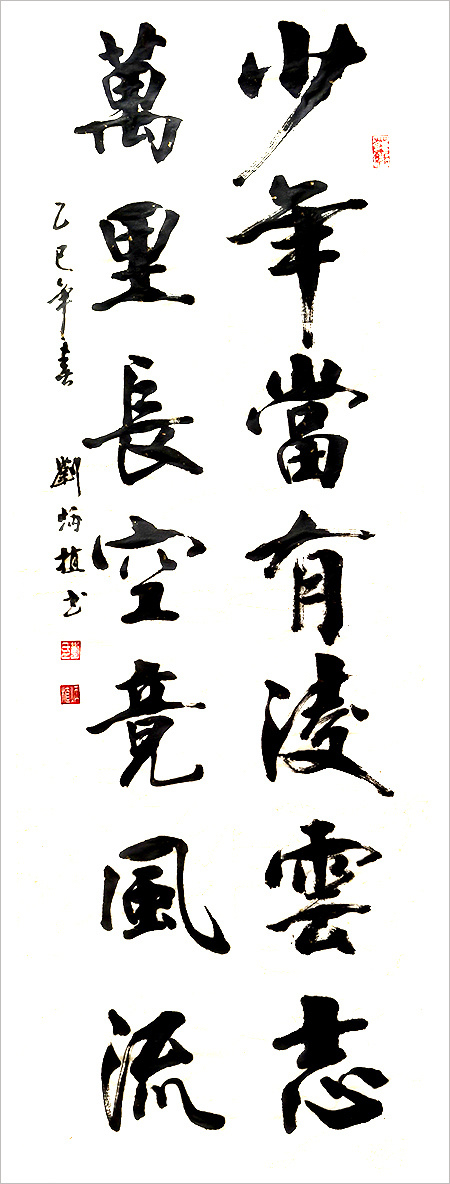 少年當有淩雲志
萬里長空竟風流
乙巳年春 劉炳植书